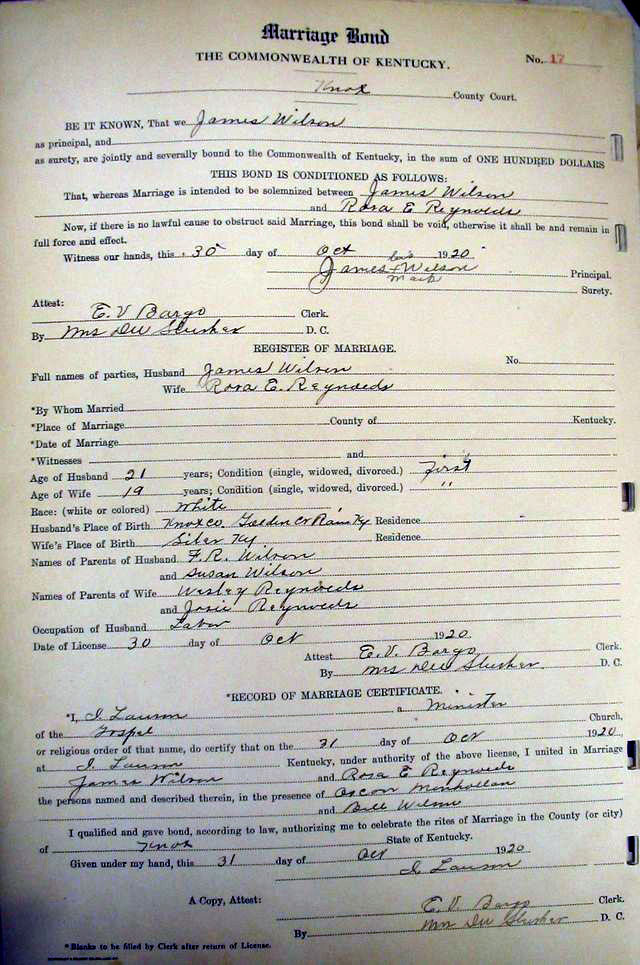 Marriage Bond
THE COMMONWEALTH OF KENTUCKY.
No. 17
Knox County Court.
BE IT KNOWN, That we James Wilson
as principal, and
as surety, are jointly and severally bound to the Commonwealth of Kentucky, in the sum of ONE HUNDRED DOLLARS
THIS BOND IS CONDITIONED AS FOLLOWS:
That, whereas Marriage is intended to be solemnized between James Wilson
and Rosa E Reynolds
Now, if there is no lawful cause to obstruct said Marriage, this bond shall be void, otherwise it shall be and remain in
full force and effect.
Witness our hands, this 30 day of Oct 1920
his
James + Wilson Principal.
mark
Surety.
Attest:
E. V. Bargo Clerk.
By Mrs Slusher D. C.
REGISTER OF MARRIAGE.
No.
Full names of parties, Husband James Wilson
Wife Rosa E. Reynolds
*By Whom Married
*Place of Marriage County of Kentucky.
*Date of Marriage
*Witnesses and
Age of Husband 21 years; Condition (single, widowed, divorced.) first
Age of Wife 19 years; Condition (single, widowed, divorced.) "
Race: (white or colored) White
Husband's Place of Birth Knox Co. Golden Ky Residence
Wife's Place of Birth Siler Ky Residence
Names of Parents of Husband F. R. Wilson
and Susan Wilson
Names of Parents of Wife Wesley Reynolds
and Josie Reynolds
Occupation of Husband Labor
Date of License 30 day of Oct 1920
Attest E. V. Bargo Clerk.
By Mrs Slusher D. C.
*RECORD OF MARRIAGE CERTIFICATE.
*I, I Lawson a Minister
of the Gospel Church,
or religious order of that name, do certify that on the 31 day of Oct 1920,
at I. Lawson Kentucky, under authority of the above license, I united in Marriage
James Wilson and Rosa E Reynolds
the persons named and described therein, in the presence of Oscar
and Bill Wilson
I qualified and gave bond, according to law, authorizing me to celebrate the rites of Marriage in the County (or city)
of Knox State of Kentucky.
Given under my hand, this 31 day of Oct 1920
I. Lawson
A Copy, Attest: E. V. Bargo Clerk.
By Mrs Slusher D. C.
*Blanks to be filled by Clerk after return of License.